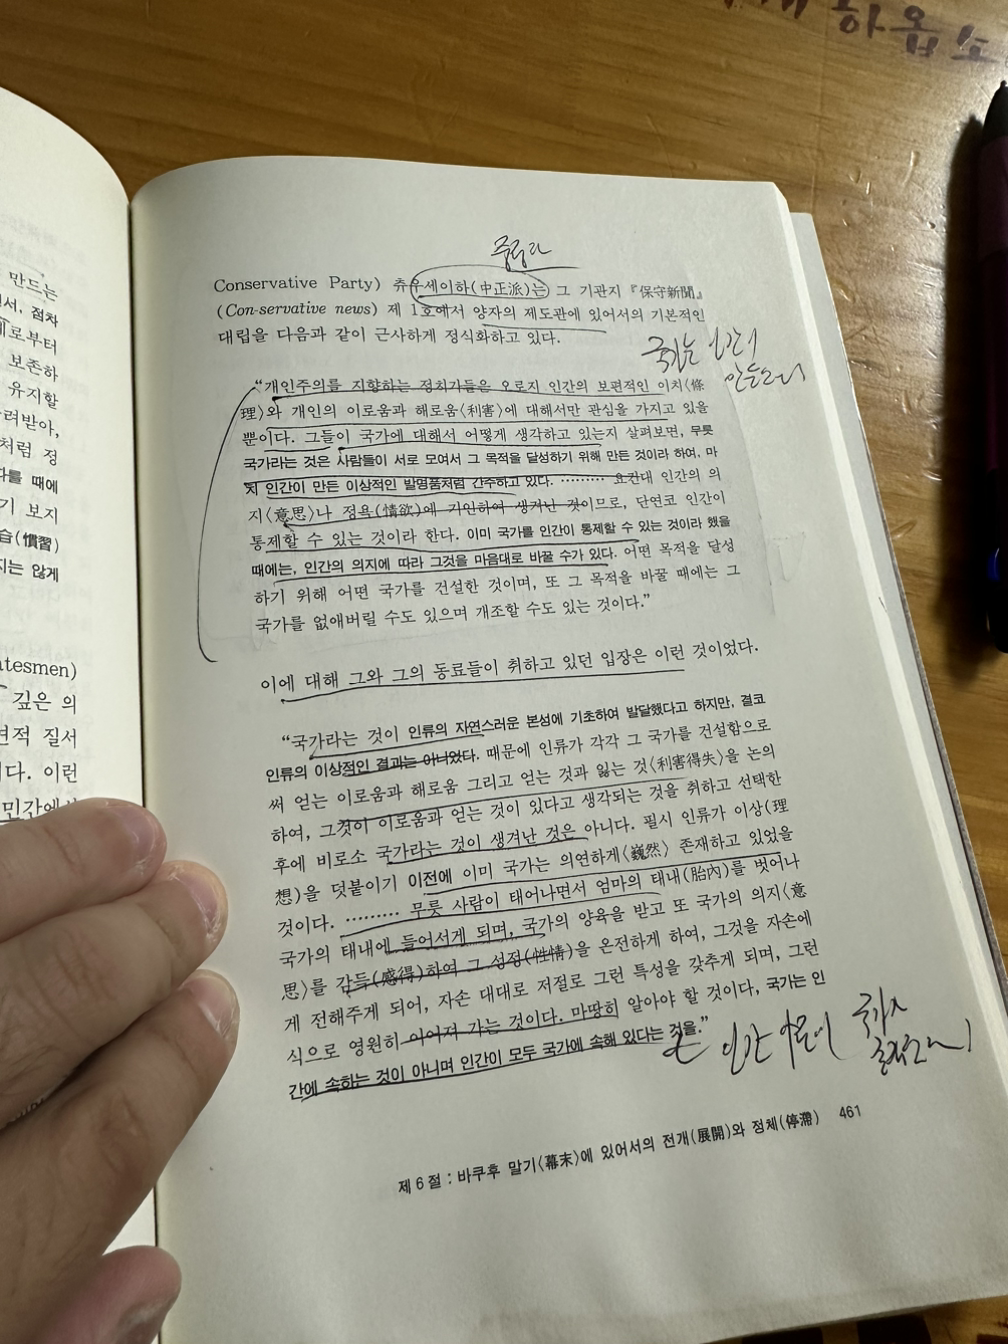 하옵소
만드는
서, 점차
로부터
보존하
유지할
려받아,
처럼 정
를 때에
기 보지
습(慣習)
지는 않게
atesmen)
깊은 의
변적 질서
다. 이런
민간에서
중정파
Conservative Party) 츄우세이하(中正派)는 그 기관지 『保守新聞』
(Con-servative news) 제 1호에서 양자의 제도관에 있어서의 기본적인
대립을 다음과 같이 근사하게 정식화하고 있다.
국가는 인간이
만든 것이
“개인주의를 지향하는 정치가들은 오로지 인간의 보편적인 이치〈條
理〉와 개인의 이로움과 해로움〈利害〉에 대해서만 관심을 가지고 있을
뿐이다. 그들이 국가에 대해서 어떻게 생각하고 있는지 살펴보면, 무릇
국가라는 것은 사람들이 서로 모여서 그 목적을 달성하기 위해 만든 것이라 하여, 마
치 인간이 만든 이상적인 발명품처럼 간주하고 있다. ……… 요컨대 인간의 의
지〈意思〉나 정욕(情欲)에 기인하여 생겨난 것이므로, 단연코 인간이
통제할 수 있는 것이라 한다. 이미 국가를 인간이 통제할 수 있는 것이라 했을
때에는, 인간의 의지에 따라 그것을 마음대로 바꿀 수가 있다. 어떤 목적을 달성
하기 위해 어떤 국가를 건설한 것이며, 또 그 목적을 바꿀 때에는 그
국가를 없애버릴 수도 있으며 개조할 수도 있는 것이다.”
이에 대해 그와 그의 동료들이 취하고 있던 입장은 이런 것이었다.
“국가라는 것이 인류의 자연스러운 본성에 기초하여 발달했다고 하지만, 결코
인류의 이상적인 결과는 아니었다. 때문에 인류가 각각 그 국가를 건설함으로
써 얻는 이로움과 해로움 그리고 얻는 것과 잃는 것〈利害得失〉을 논의
하여, 그것이 이로움과 얻는 것이 있다고 생각되는 것을 취하고 선택한
후에 비로소 국가라는 것이 생겨난 것은 아니다. 필시 인류가 이상(理
想)을 덧붙이기 이전에 이미 국가는 의연하게〈巍然〉 존재하고 있었을
것이다. ……… 무릇 사람이 태어나면서 엄마의 태내(胎內)를 벗어나
국가의 태내에 들어서게 되며, 국가의 양육을 받고 또 국가의 의지〈意
思〉를 감득(感得)하여 그 성정(性情)을 온전하게 하여, 그것을 자손에
게 전해주게 되어, 자손 대대로 저절로 그런 특성을 갖추게 되며, 그런
식으로 영원히 이어져 가는 것이다. 마땅히 알아야 할 것이다, 국가는 인
간에 속하는 것이 아니며 인간이 모두 국가에 속해 있다는 것을.”
인간
국가
제 6 절 : 바쿠후 말기〈幕末〉에 있어서의 전개(展開)와 정체(停滯) 461